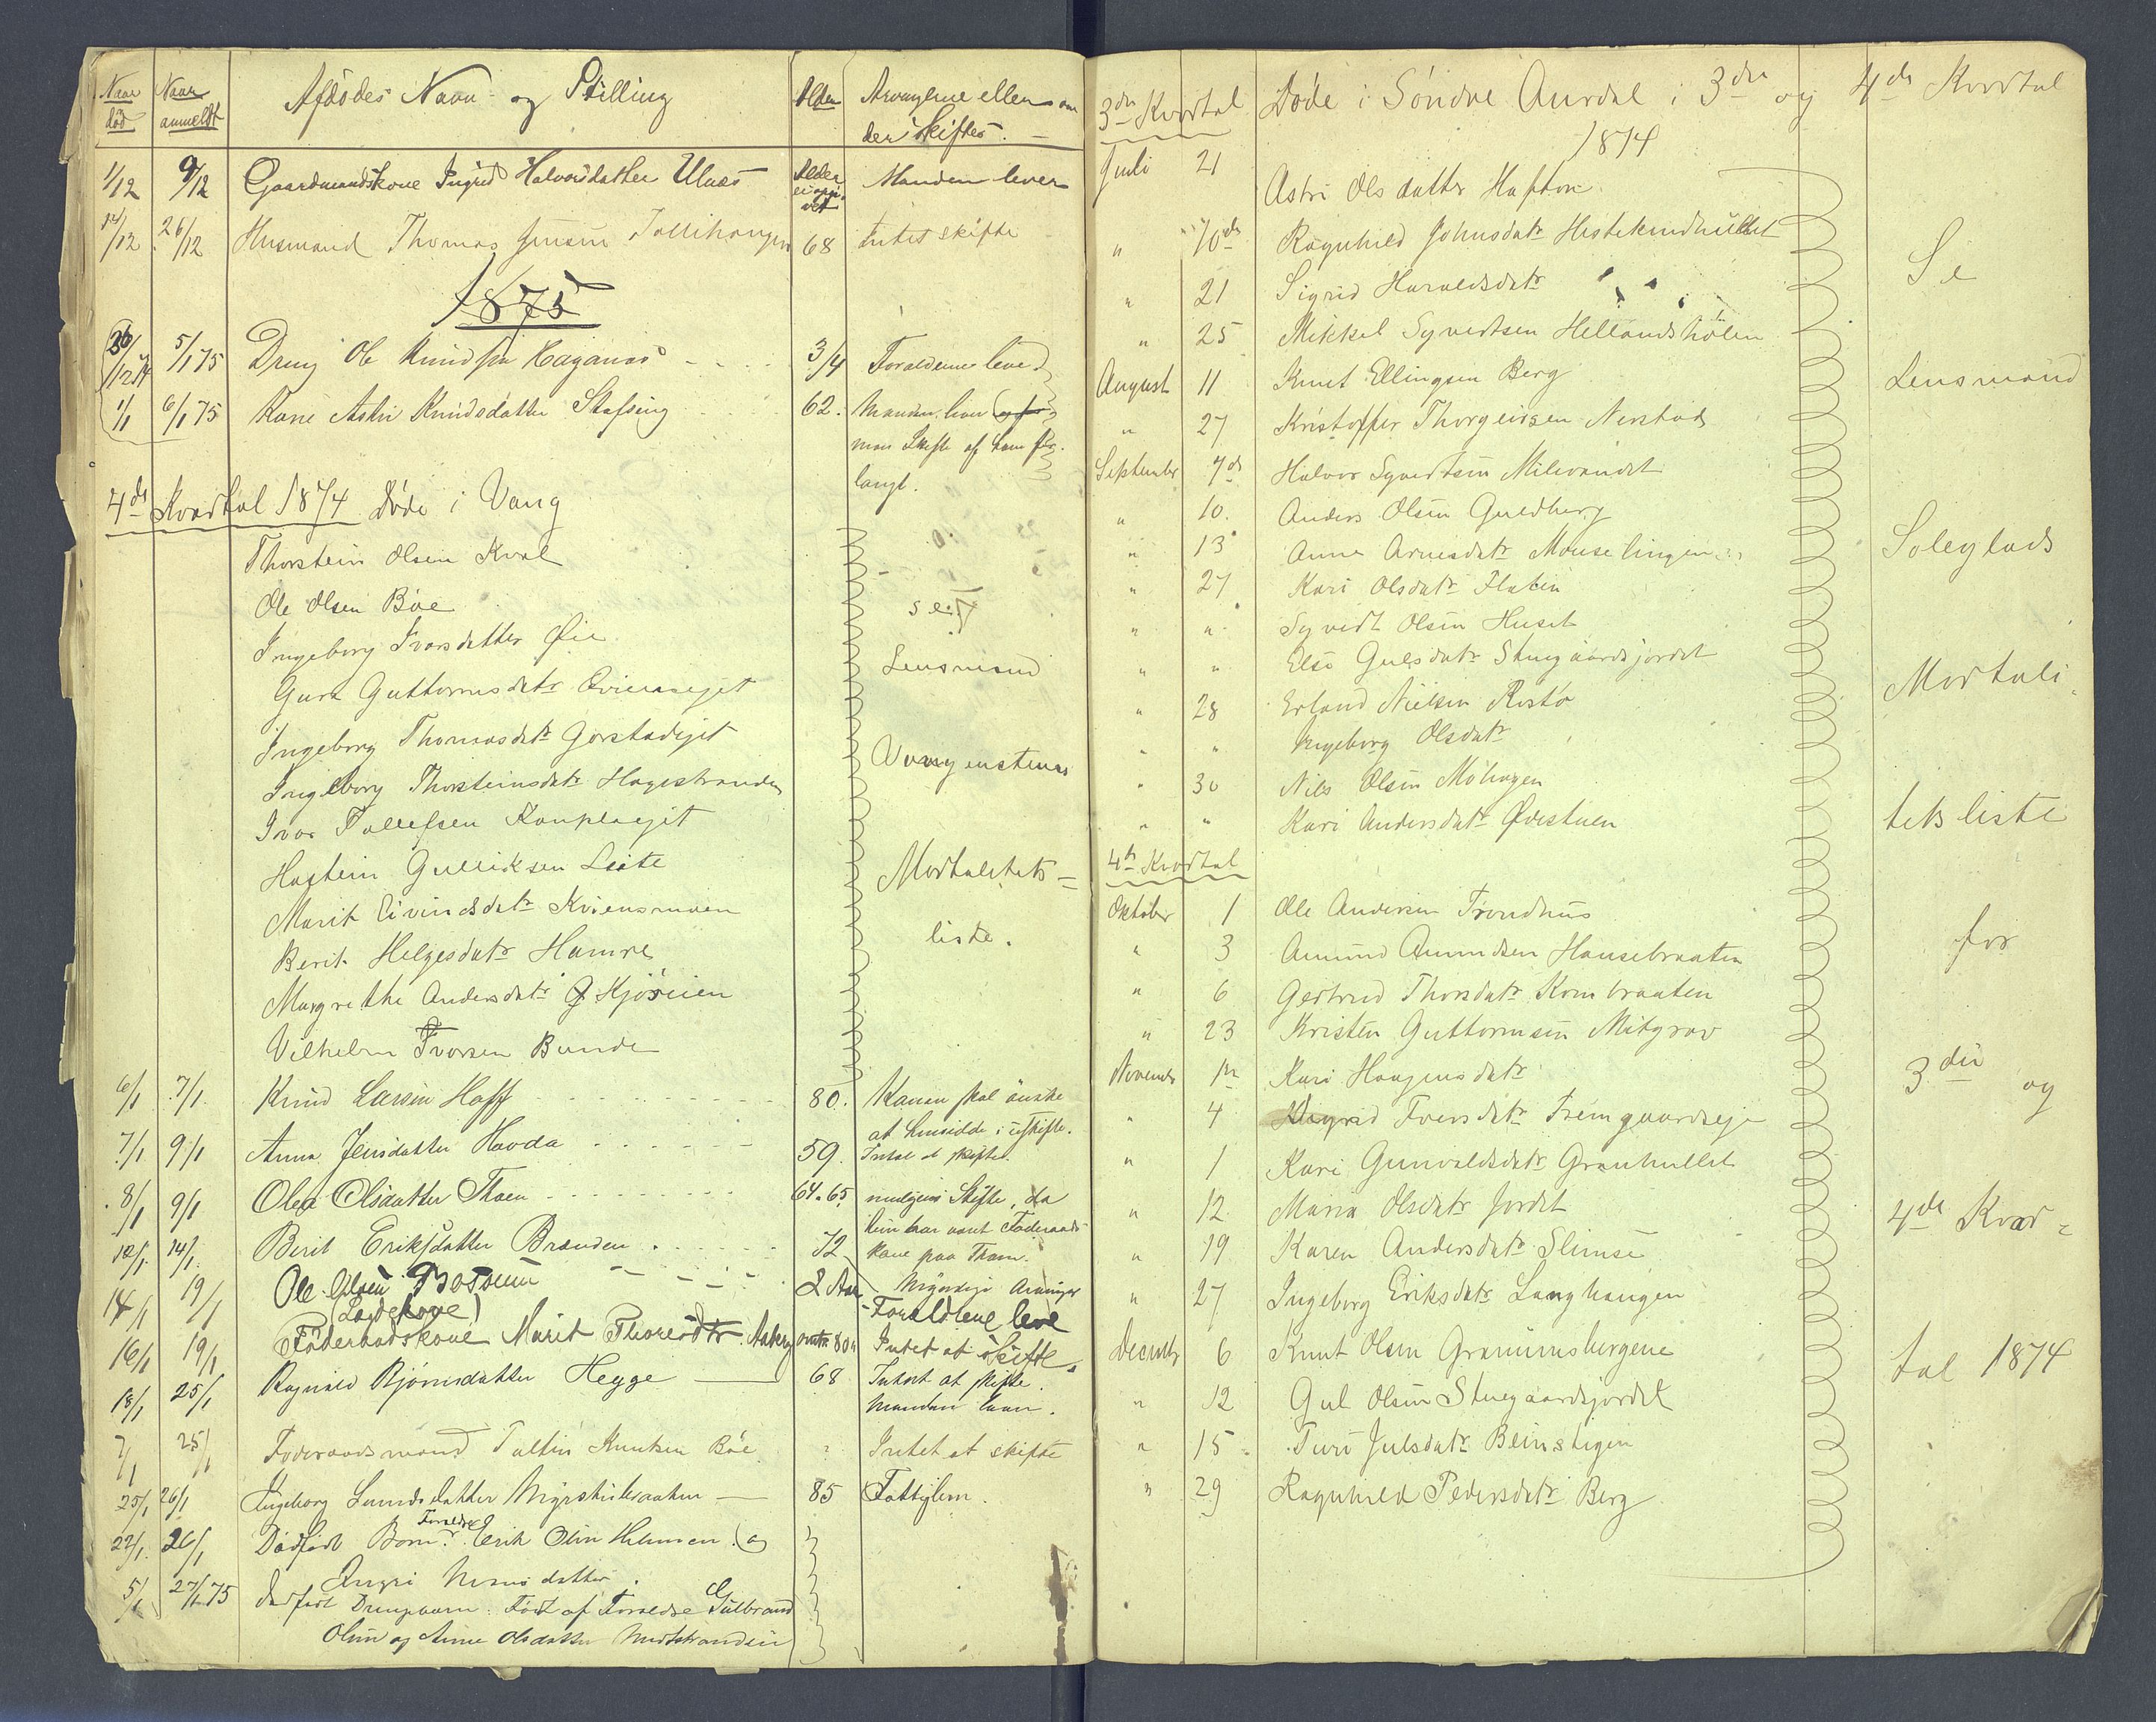 Naar død Naar anmeldt Afdødes Navn og Stilling Alder Arvingerne eller om
der skiftes.
1/12 9/12 Gaardmandskone Ingrid Halvorsdatter Ulnæs Alder ei opgi- vet Manden lever
14/12 26/12 Husmand Thomas Jensen 68 Intet skifte
1875
5/1 75 Dreng Ole Knudsen 3/4 Forældrene leve
1/1 6/1 75 Kone Astri Knudsdatter 62. Manden lever
langt.
4de Kvartal 1874 Døde i Vang
Thorstein Olsen Kval
Ole Olsen Bøe
se
Ingeborg Ivarsdatter Øie
Lensmand
Guri Guttormsdatr
Ingeborg Thomasdatr Gorstadejet
Vangenstens
Ingeborg Thorsteinsdatr Hagestranden
Ivar Tollefsen
Hastein Gulliksen Leite
Mortalitets-
Marit Eivindsdatr Kviensmoen
liste.
Berit Helgesdatr Hamre
Margrethe Andersdatr Kjøseien
Vilhelm Ivarsen Bunde
6/1 7/1 Knud Larsen Hoff 80. Konen skal ønske
at hensidde i uskifte.
7/1 9/1 Anna Jensdatter Havda 59. Intet at skifte.
8/1 9/1 Olea Olsdatter Thoen 64-65 Skifte, da
hun har været Føderaads-
12/1 14/1 Berit Eriksdatter Brænden 72 kone paa Thoen.
14/1 19/1 Ole Olsen 2 Aar Myndige Arvinger
Forældrene leve
16/1 19/1 Føderaadskone Marit Thoresdtr. Aaberg omtr. 80 Intet at skifte
18/1 25/1 Ragnild Bjørnsdatter Hegge 68 Intet at skifte.
Manden lever.
7/1 25/1 Føderaadsmand Knutsen Bøe Intet at skifte
25/1 26/1 Ingeborg 85 Fattiglem.
22/1 26/1 Dødfødt Barn. Forældre Erik Olsen og
5/1 27/1 75 Dødfødt Drengebarn. Født af Forældre Gulbrand
Olsen og Anne Olsdatter
3die Kvartal Døde i Søndre Aurdal i 3die og 4de Kvartal
1874
Juli 21 Astri Olsdatter Hafton
" 10de Ragnhild Johnsdatr
Se
" 21 Sigrid Haraldsdatr " "
" 25 Mikkel Syvertsen Hellandshølen
August 11 Knut Ellingsen Berg
Lensmand
" 27 Kristoffer Thorgeirsen Nerstad
September 7de Halvor Syvertsen Milevandet
" 10. Anders Olsen Guldberg
" 13 Anne Arnesdatr
Soleglads
" 27 Kari Olsdatr Flaten
" " Syvert Olsen Huset
" " Else Gulsdatr Stuegaardsjordet
Mortali-
" 28 Erland Nielsen Rostø
" " Ingeborg Olsdatr
" 30 Nils Olsen Møhagen
" " Kari Andersdatr Øvestuen
tets liste
4de Kvartal
Oktober 1 Ole Andersen Trondhus
" 3 Amund Amundsen Hansebraaten
for
" 6 Gertrud Thorsdatr Kornbraaten
" 23 Kristen Guttormsen Mitgrav
November 1ste Kari Haagensdatr
3die og
" 4 Sigrid Iversdatr Fremgaardseje
" 1 Kari Gunvaldsdatr Granhullet
" 12 Maria Olsdatr Jordet
4de Kvar-
" 19 Karen Andersdatr Slimse
" 27 Ingeborg Eriksdatr Langhaugen
Decembr 6 Knut Olsen Granumsbergene
tal 1874
" 12 Gul Olsen Stuegaardsjordet
" 15 Turi Julsdatr Beinstigen
" 29 Ragnhild Pedersdatr Berg